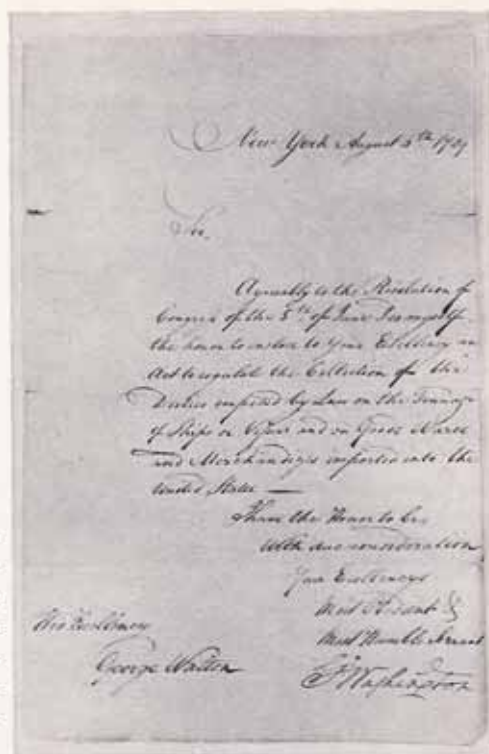 New York August 5th 1789
Sir,
Agreeably to the Resolution of
Congress of the 5th of June I do myself
the honor to inclose to your Excellency an
Act to regulate the Collection of the
Duties imposed by Law on the Tonnage
of Ships or Vessels and on Goods Wares
and Merchandizes imported into the
United States —
I have the Honor to be
With due consideration
Your Excellencys
Most Obedient &
Most Humble Servant
His Excellency
George Walton
G Washington